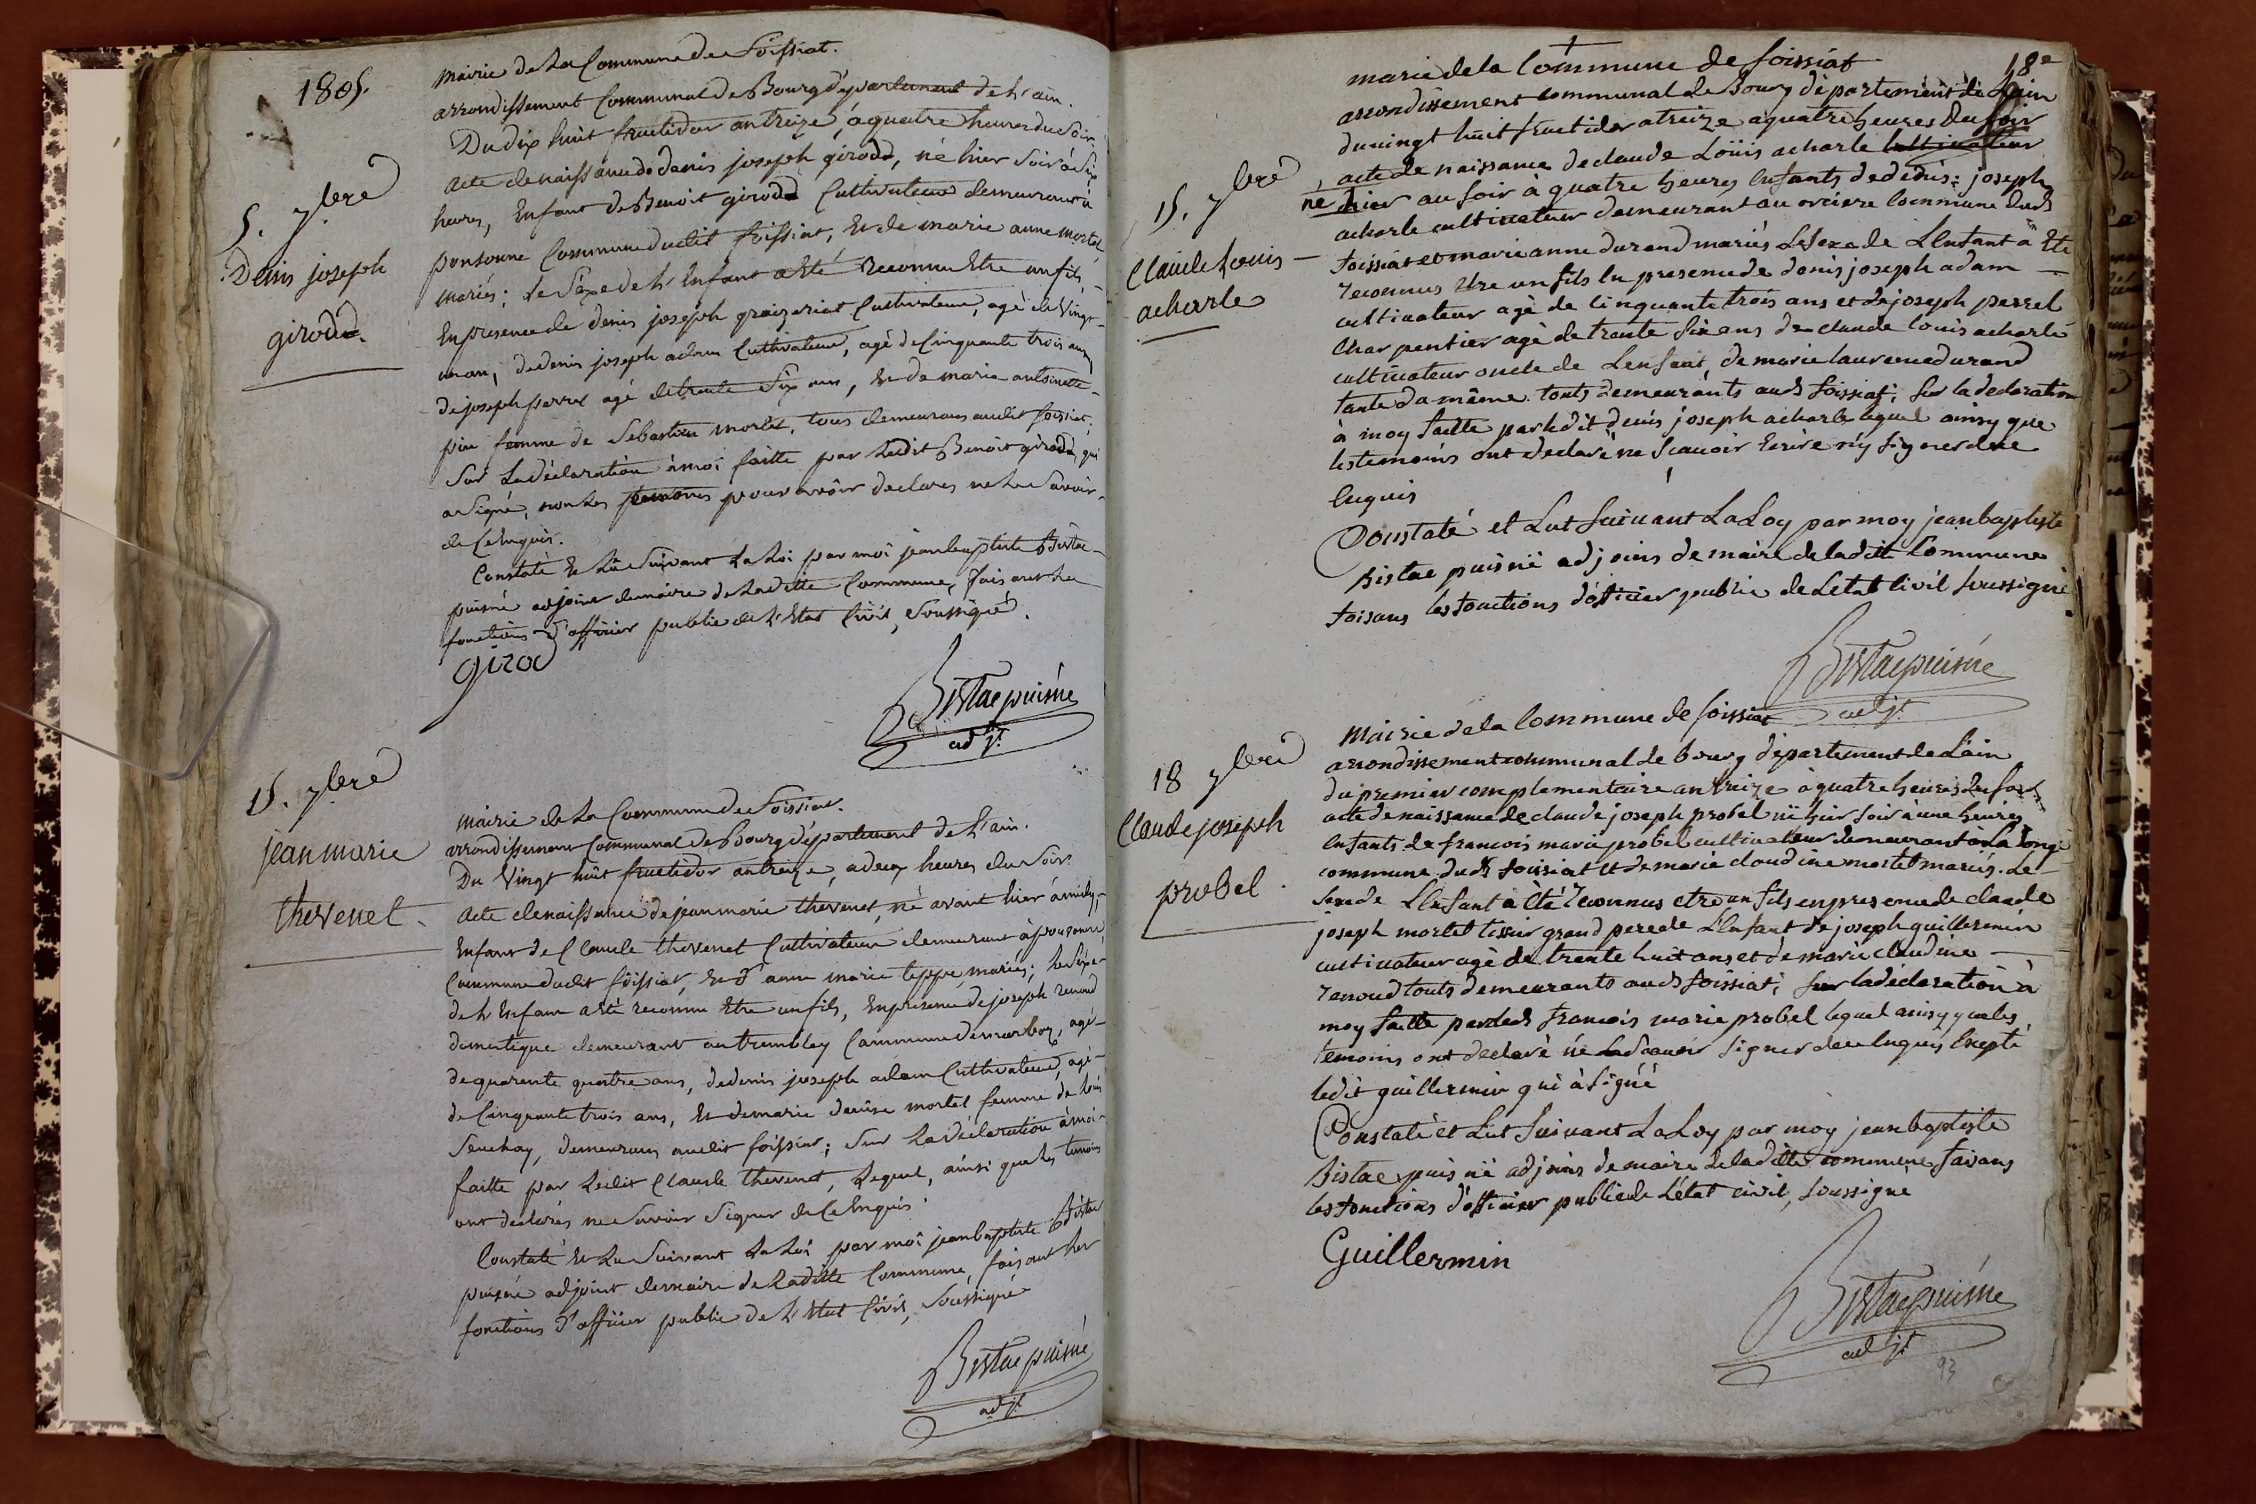 1805.
Mairie de La Commune de Foissiat.
arrondissement Communal de Bourg département de L'ain.
Du dix huit fructidor an treize, à quatre heures du soir
5. 7bre
Denis joseph
girodd.
Acte de naissance de denis joseph girodd, né hier soir à six
heures, Enfant de Benoit girodd Cultivateur demeurant à
ponsonne Commune dudit foissiat, Et de marie anne mortel
mariés; Le Sexe de L'Enfant a été reconnu Etre un fils,
En presence de denis joseph graizeriat Cultivateur, agé de Vingt
un an, de denis joseph adam Cultivateur, agé de Cinquante trois ans
de joseph perrel agé de trente Six ans, Et de marie antoinette
piu femme de Sebastien mortel, tous demeurans audit foissiat,
Sur La déclaration à moi faitte par Ledit Benoit girodd, qui
a Signé, non Les témoins pour avoir declarés ne Le Savoir
de Ce Enquis.
Constaté Et Lu Suivant La Loi par moi jean baptiste Bistac
puisné adjoint de maire de Laditte Commune, faisant Les
fonctions d'officier public de L'Etat Civil, Soussigné.
girod
Bistac puisné
adjt.
15. 7bre
jean marie
thevenet
mairie de La Commune de Foissiat.
arrondissement Communal de Bourg département de L'ain.
Du Vingt huit fructidor an treize, a deux heures du Soir.
Acte de naissance de jean marie thevenet, né avant hier à midy,
Enfant de Claude thevenet Cultivateur demeurant à ponsonne
Commune dudit foissiat, Et d'anne marie teppe, mariés; Le Sexe
de L'Enfant a été reconnu Etre un fils, En presence de joseph renoud
domestique demeurant au tremblay Commune de marboz, agé
de quarente quatre ans, de denis joseph adam Cultivateur, agé
de Cinquante trois ans, Et de marie denise mortel femme de Loüis
Senchay, demeurans audit foissiat; Sur La déclaration à moi
faitte par Ledit Claude thevenet, Lequel, ainsi que Les temoins
ont declarés ne Savoir Signer de Ce Enquis
Constaté Et Lu Suivant La Loi par moi jean baptiste Bistac
puisné adjoint de maire de Laditte Commune, faisant Les
fonctions d'officier public de L'Etat Civil, Soussigné
Bistac puisné
adjt.
18e
marie de la Commune de foissiat
arrondissement communal de Bourg département de Lain
du vingt huit fructidor a treize a quatre heures du soir
15. 7bre
Claude Louis
acharle
acte de naissance de claude Loüis acharle cultivateur
né hier au soir à quatre heures Enfants de denis joseph
acharle cultivateur demeurant au orciere Commune dudt
foissiat et marie anne durand mariés Le sexe de L'Enfant à Eté
reconnus Etre un fils En presence de denis joseph adam
cultivateur agé de cinquante trois ans et de joseph perrel
Charpentier agé de trante six ans de claude louis acharle
cultivateur oncle de L'enfant, de marie laurence durand
tante du même touts demeurants audt foissiat; sur la declaration
à moy faitte par ledit denis joseph acharle lequel ainsy que
les temoins ont declaré ne scavoir Ecrire n'y signer de ce
Enquis
Constaté et Lut suivant La Loy par moy jean baptiste
Bistac puisné adjoins de maire de ladite Commune
foisans les fonctions d'officier public de L'etat Civil soussigné
Bistac puisné
adjt
18 7bre
Claude joseph
probel.
Mairie de la Commune de foissiat
arrondissement communal de bourg département de L'ain
du premier complementaire an treize à quatre heures du soir
acte de naissance de claude joseph probel né hier soir à une heures
Enfants de francois marie probel cultivateur demeurant à La Longe
commune dudt foissiat et de marie claudine mortel mariés. Le
sexe de L'Enfant à été reconnus etre un fils en presence de claude
joseph mortel tissier grand pere de L'Enfant de joseph guillermin
cultivateur agé de trente huit ans et de marie claudine
renoud touts demeurants audt foissiat; sur la déclaration à
moy faitte par ledt francois marie probel lequel ainsy que les
temoins ont declaré ne La scavoir signer de ce Enquis Excepté
ledit guillermin qui à signé
Constaté et Lut suivant La Loy par moy jean baptiste
Bistac puisné adjoins de maire de ladite commune faisans
les fonctions d'officier public de L'état civil, soussigne
Guillermin
Bistac puisné
adjt
93